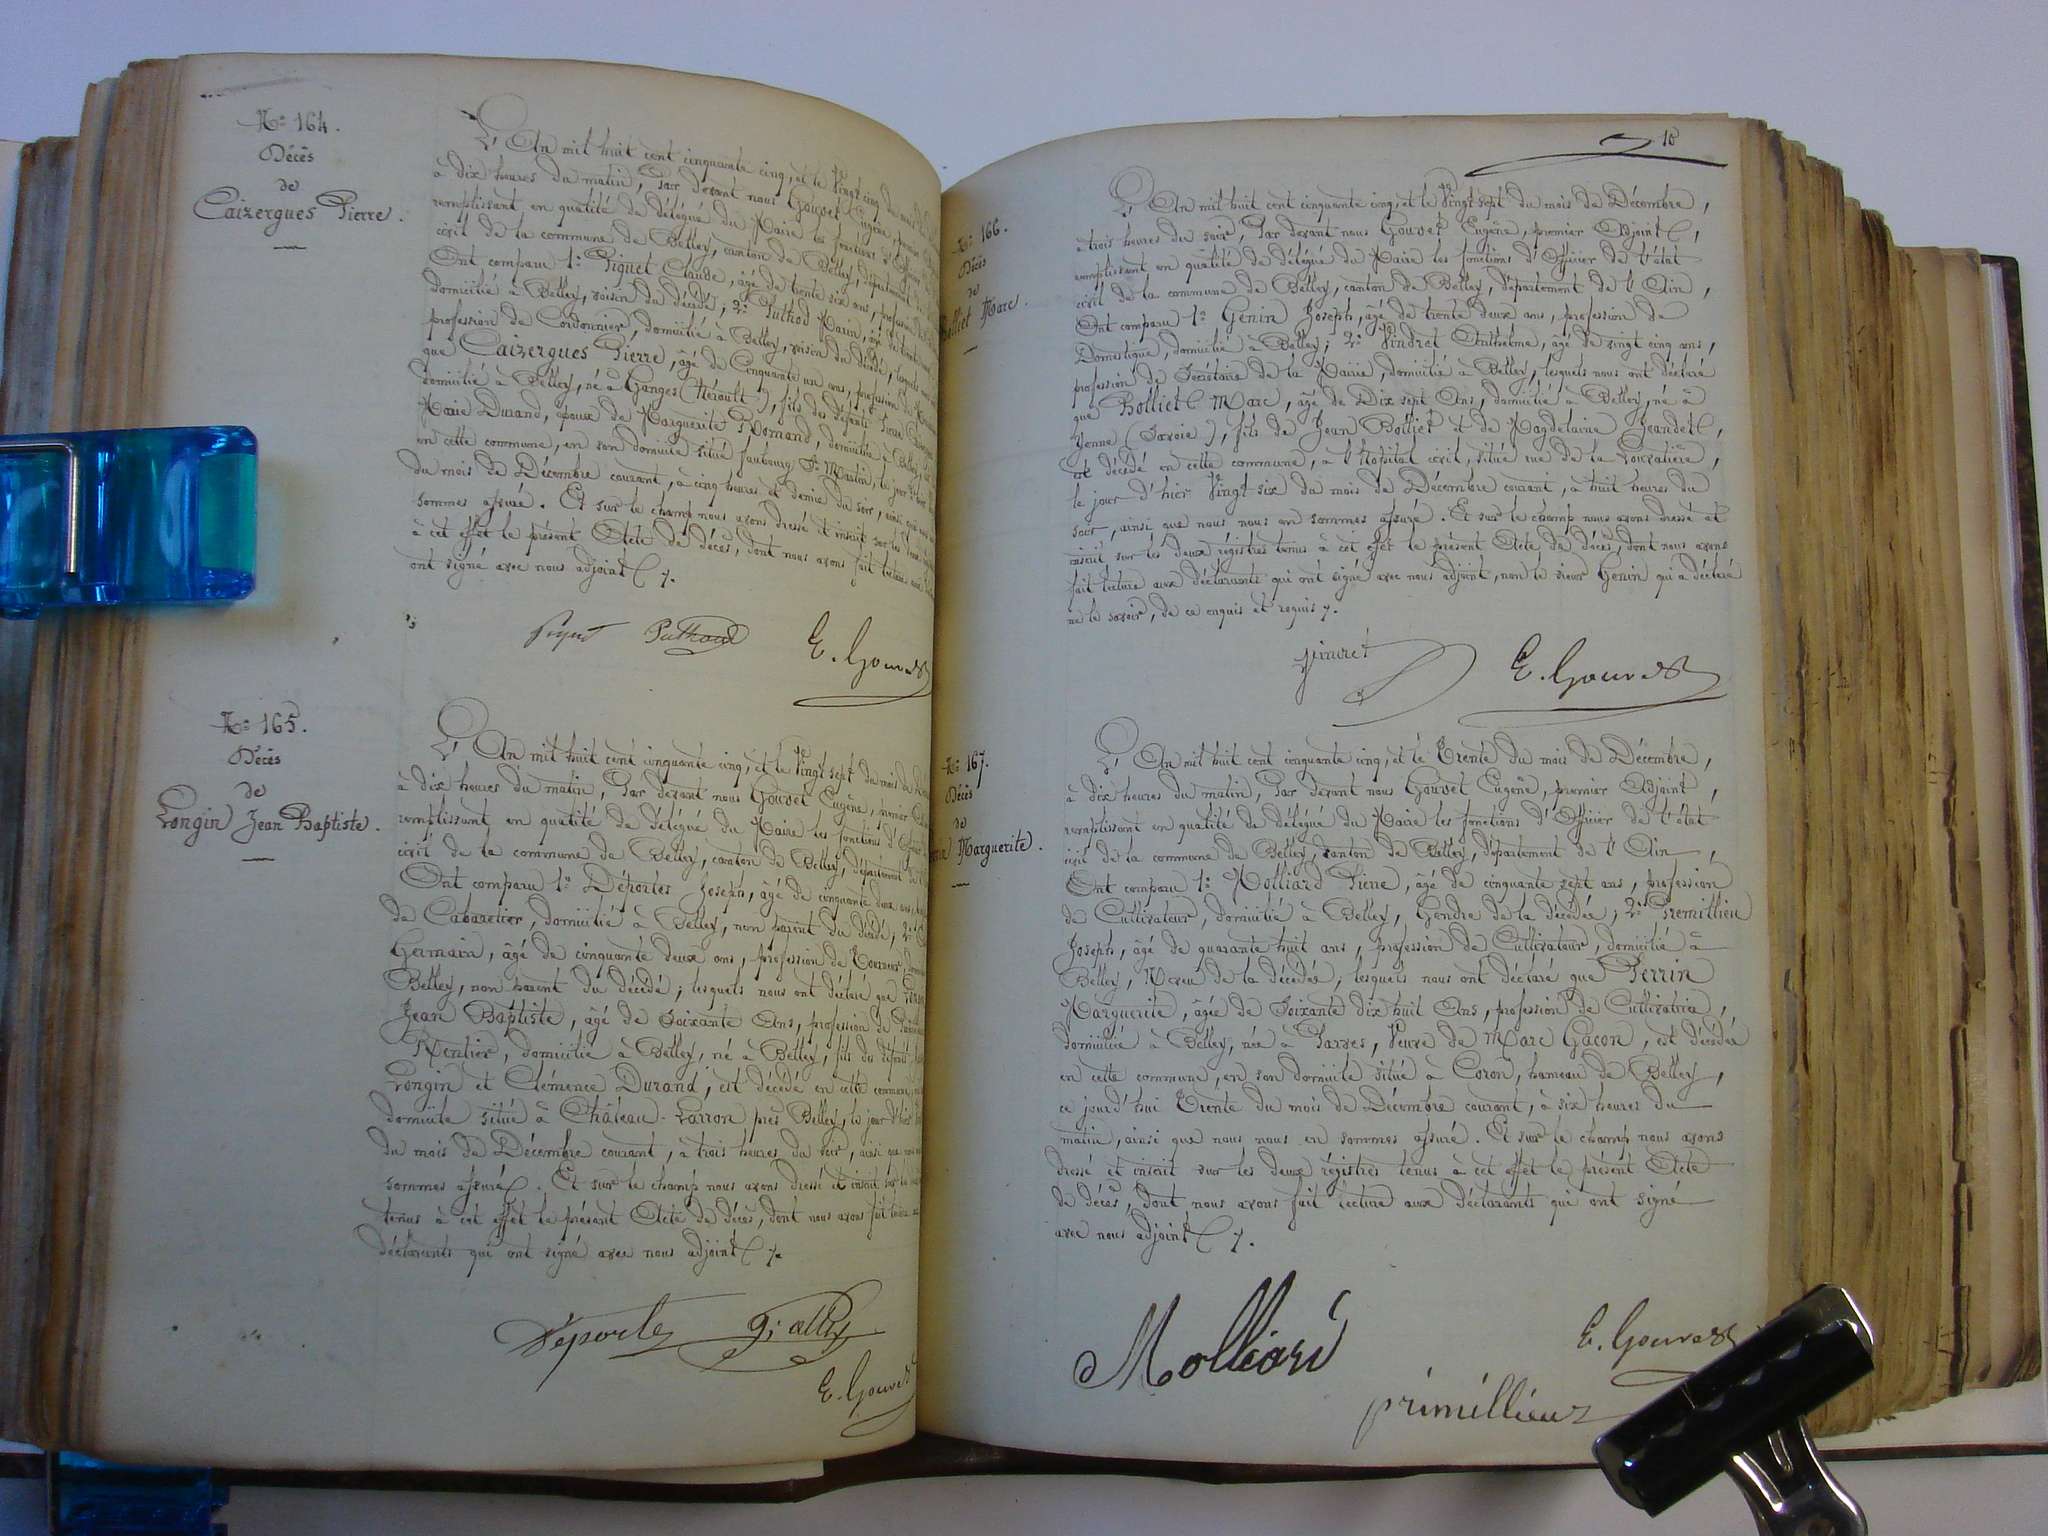 N.° 164.
Décès
de
Caizergues Pierre.
L'An mil huit cent cinquante cinq, et le Vingt cinq du mois
à dix heures du matin, Par devant nous Gouvet Eugène, premier
remplissant en qualité de délégué du Maire les fonctions d'Officier
civil de la commune de Belley, canton de Belley, département
Ont comparu 1.° Piguet Claude, âgé de trente six ans, profession
domicilié à Belley, voisin du décédé, 2.° Puthod Marin, âgé de
profession de Cordonnier, domicilié à Belley, voisin du décédé, lesquels
que Caizergues Pierre, âgé de Cinquante un ans, profession de
domicilié à Belley, né à Ganges (Hérault), fils des défunts Pierre
Marie Durand, époux de Marguerite Romand, domiciliée à Belley, est
en cette commune, en son domicile situé faubourg St. Martin, le jour d'hier
du mois de Décembre courant, à cinq heures et demie du soir, ainsi que
sommes assuré. Et sur le champ nous avons dressé et inscrit sur les deux
à cet effet le présent Acte de décès, dont nous avons fait lecture aux
ont signé avec nous adjoint ./.
Piguet Puthod E. Gouvet
N.° 165.
Décès
de
Longin Jean Baptiste.
L'An mil huit cent cinquante cinq, et le Vingt sept du mois de
à dix heures du matin, Par devant nous Gouvet Eugène, premier
remplissant en qualité de délégué du Maire les fonctions d'Officier
civil de la commune de Belley, canton de Belley, département de
Ont comparu 1.° Déportes Joseph, âgé de cinquante deux ans,
de Cabaretier, domicilié à Belley, non parent du décédé, 2.°
Germain, âgé de cinquante deux ans, profession de Tourneur,
Belley, non parent du décédé; lesquels nous ont déclaré que
Jean Baptiste, âgé de Soixante Ans, profession de
Rentier, domicilié à Belley, né à Belley, fils du défunt
Longin et Clémence Durand, est décédé en cette commune,
domicile situé à Château-Larron près Belley, le jour d'hier
du mois de Décembre courant, à trois heures du soir, ainsi que
sommes assuré. Et sur le champ nous avons dressé et inscrit sur les
tenus à cet effet le présent Acte de décès, dont nous avons fait lecture aux
déclarants qui ont signé avec nous adjoint ./.
Déportes
E. Gouvet
18
N.° 166.
Décès
de
Bolliet Marc.
L'An mil huit cent cinquante cinq, et le Vingt sept du mois de Décembre,
à trois heures du soir, Par devant nous Gouvet Eugène, premier Adjoint,
remplissant en qualité de délégué du Maire les fonctions d'Officier de l'état
civil de la commune de Belley, canton de Belley, département de l'Ain,
Ont comparu 1.° Genin Joseph, âgé de trente deux ans, profession de
Domestique, domicilié à Belley; 2.° Vindret Anthelme, âgé de vingt cinq ans,
profession de Secrétaire de la Mairie, domicilié à Belley, lesquels nous ont déclaré
que Bolliet Marc, âgé de Dix sept Ans, domicilié à Belley, né à
Yenne (Savoie), fils de Jean Bolliet et de Magdelaine Jeandet,
est décédé en cette commune, à l'Hopital civil, situé rue de la Louvatière,
le jour d'hier Vingt six du mois de Décembre courant, à huit heures du
soir, ainsi que nous nous en sommes assuré. Et sur le champ nous avons dressé et
inscrit sur les deux régistres tenus à cet effet le présent Acte de décès, dont nous avons
fait lecture aux déclarants qui ont signé avec nous adjoint, non le sieur Genin qui a déclaré
ne le savoir, de ce enquis et requis ./.
E. Gouvet
N.° 167.
Décès
de
Marguerite.
L'An mil huit cent cinquante cinq, et le Trente du mois de Décembre,
à dix heures du matin, Par devant nous Gouvet Eugène, premier Adjoint,
remplissant en qualité de délégué du Maire les fonctions d'Officier de l'état
civil de la commune de Belley, canton de Belley, département de l'Ain,
Ont comparu 1.° Molliard Pierre, âgé de cinquante sept ans, profession
de Cultivateur, domicilié à Belley, Gendre de la décédée; 2.° Premillieu
Joseph, âgé de quarante huit ans, profession de Cultivateur, domicilié à
Belley, Neveu de la décédée; lesquels nous ont déclaré que Perrin
Marguerite, âgée de Soixante dix huit Ans, profession de Cultivatrice,
domiciliée à Belley, née à Parves, Veuve de Marc Gacon, est décédée
en cette commune, en son domicile situé à Coron, hameau de Belley,
ce jourd'hui Trente du mois de Décembre courant, à six heures du
matin, ainsi que nous nous en sommes assuré. Et sur le champ nous avons
dressé et inscrit sur les deux régistres tenus à cet effet le présent Acte
de décès, dont nous avons fait lecture aux déclarants qui ont signé
avec nous adjoint ./.
Molliard E. Gouvet
primillieux